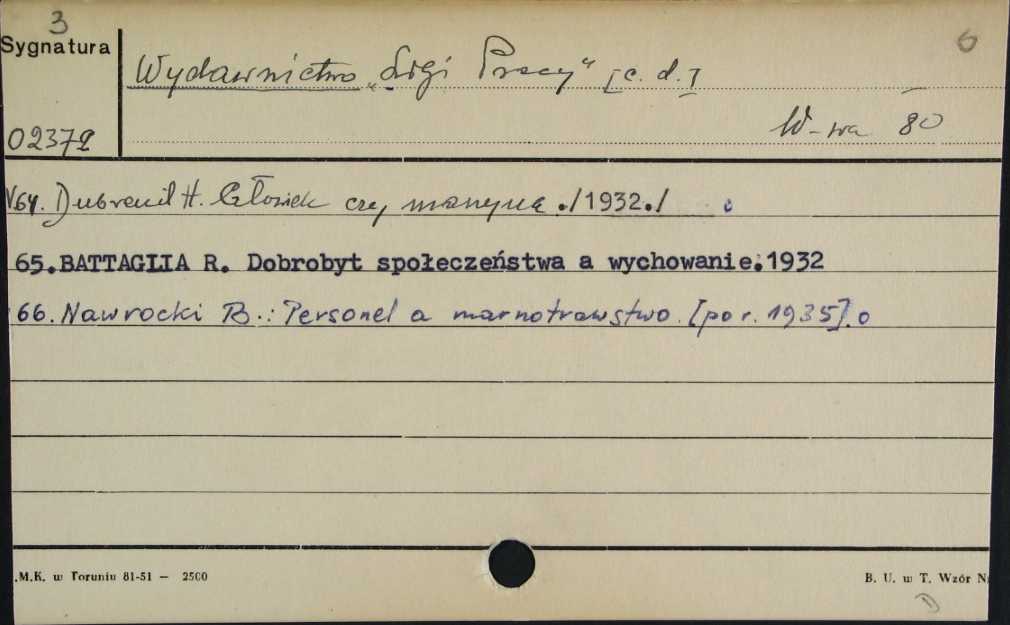 3
6
Sygnatura
Wydawnictwo „Ligi Pracy" [c. d.]
W-wa 80
02372
V64. Dubreuil H. Człowiek czy maszyna ./1932./ o
65.BATTAGLIA R. Dobrobyt społeczeństwa a wychowanie.1932
66. Nawrocki B.: Personel a marnotrawstwo. [por. 1935]. o
.M.K. w Toruniu 81-51 — 2500
B. U. w T. Wzór N